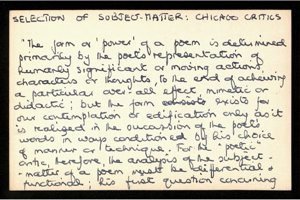 SELECTION OF SUBJECT-MATTER: CHICAGO CRITICS
"The form or 'power' of a poem is determined
primarily by the poet's representation of
humanly significant or moving actions,
characters or thoughts, to the end of achieving
a particular over-all effect, mimetic or
didactic; but the form consists exists for
our contemplation or edification only as it
is realised in the succession of the poet's
words in ways conditioned by his choice
of manner or technique. For the "poetic"
critic, therefore, the analysis of the subject-
-matter of a poem must be differential &
functional; his first question concerning